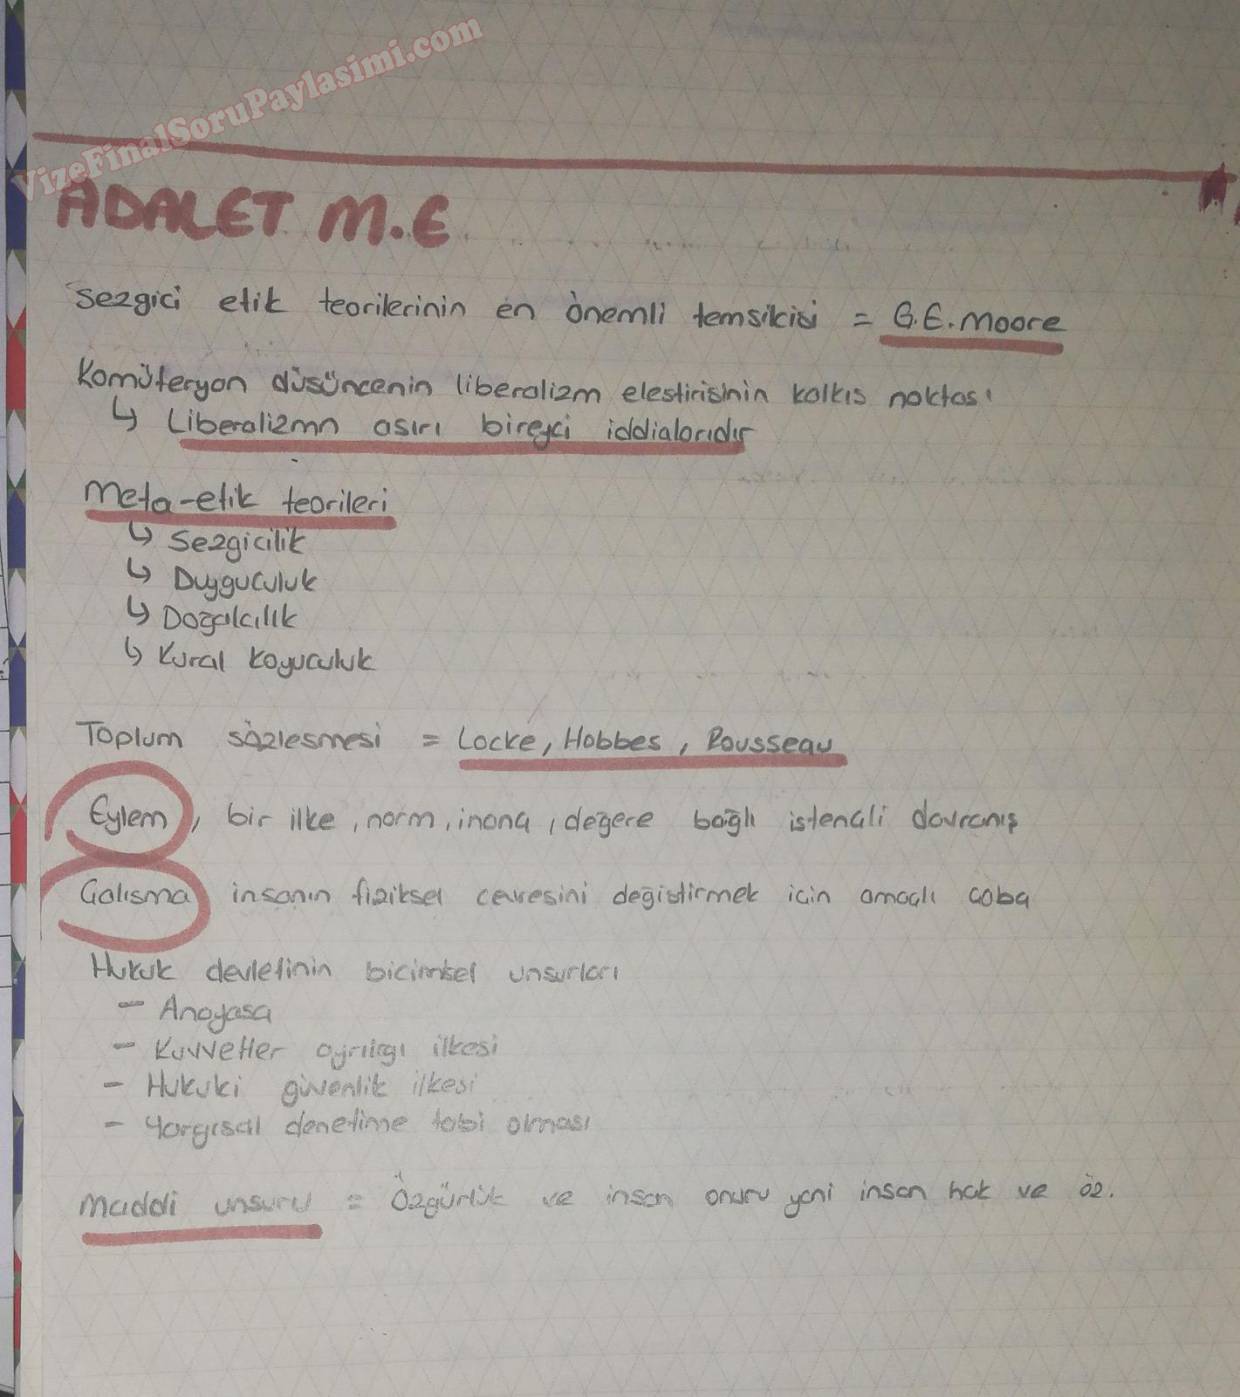 VizeFinalSoruPaylasimi.com
ADALET M.E
Sezgici etik teorilerinin en önemli temsilcisi = G.E. Moore
Komüteryan düsüncenin liberalizm elestirisinin kalkıs noktası
↳ Liberalizmn asırı bireyci iddialarıdır
Meta-etik teorileri
↳ Sezgicilik
↳ Duyguculuk
↳ Doğalcılık
↳ Kural koyuculuk
Toplum sözlesmesi = Locke, Hobbes, Rousseau
Eylem, bir ilke, norm, inanç, değere bağlı istençli davranış
Çalısma insanın fiziksel cevresini değistirmek icin amaçlı çaba
Hukuk devletinin bicimsel unsurları
- Anayasa
- Kuvvetler ayrılığı ilkesi
- Hukuki güvenlik ilkesi
- Yargısal denetime tabi olması
Maddi unsuru = Özgürlük ve insan onuru yani insan hak ve öz.